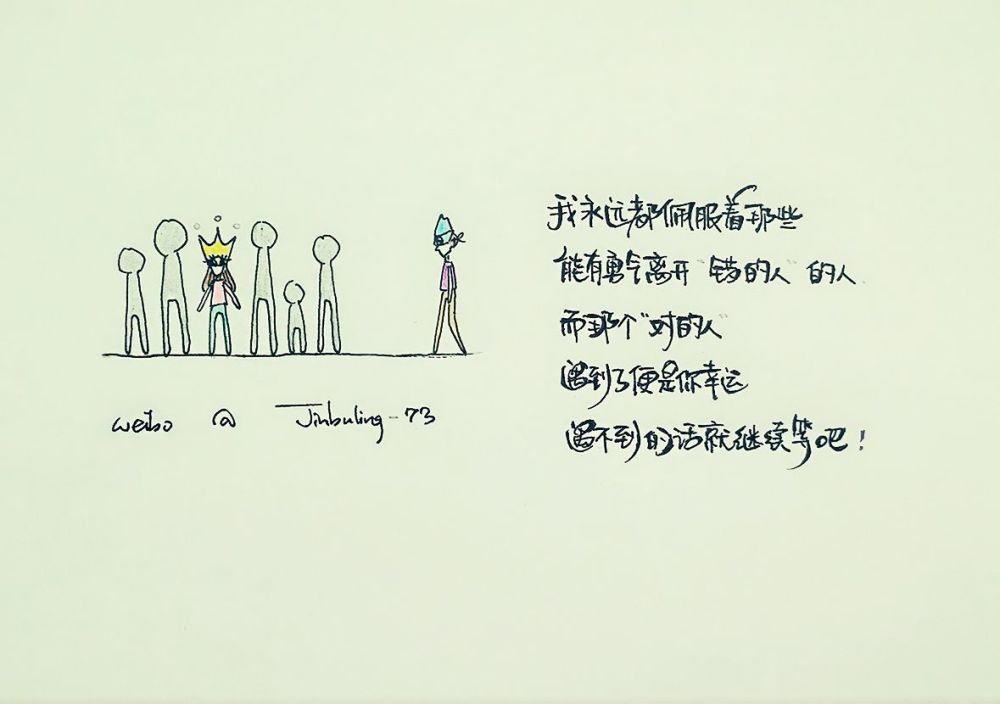 我永远都佩服着那些
能有勇气离开"错的人"的人
而那个"对的人"
遇到了便是你幸运
遇不到的话就继续等吧！
weibo @ Jinbuling-73